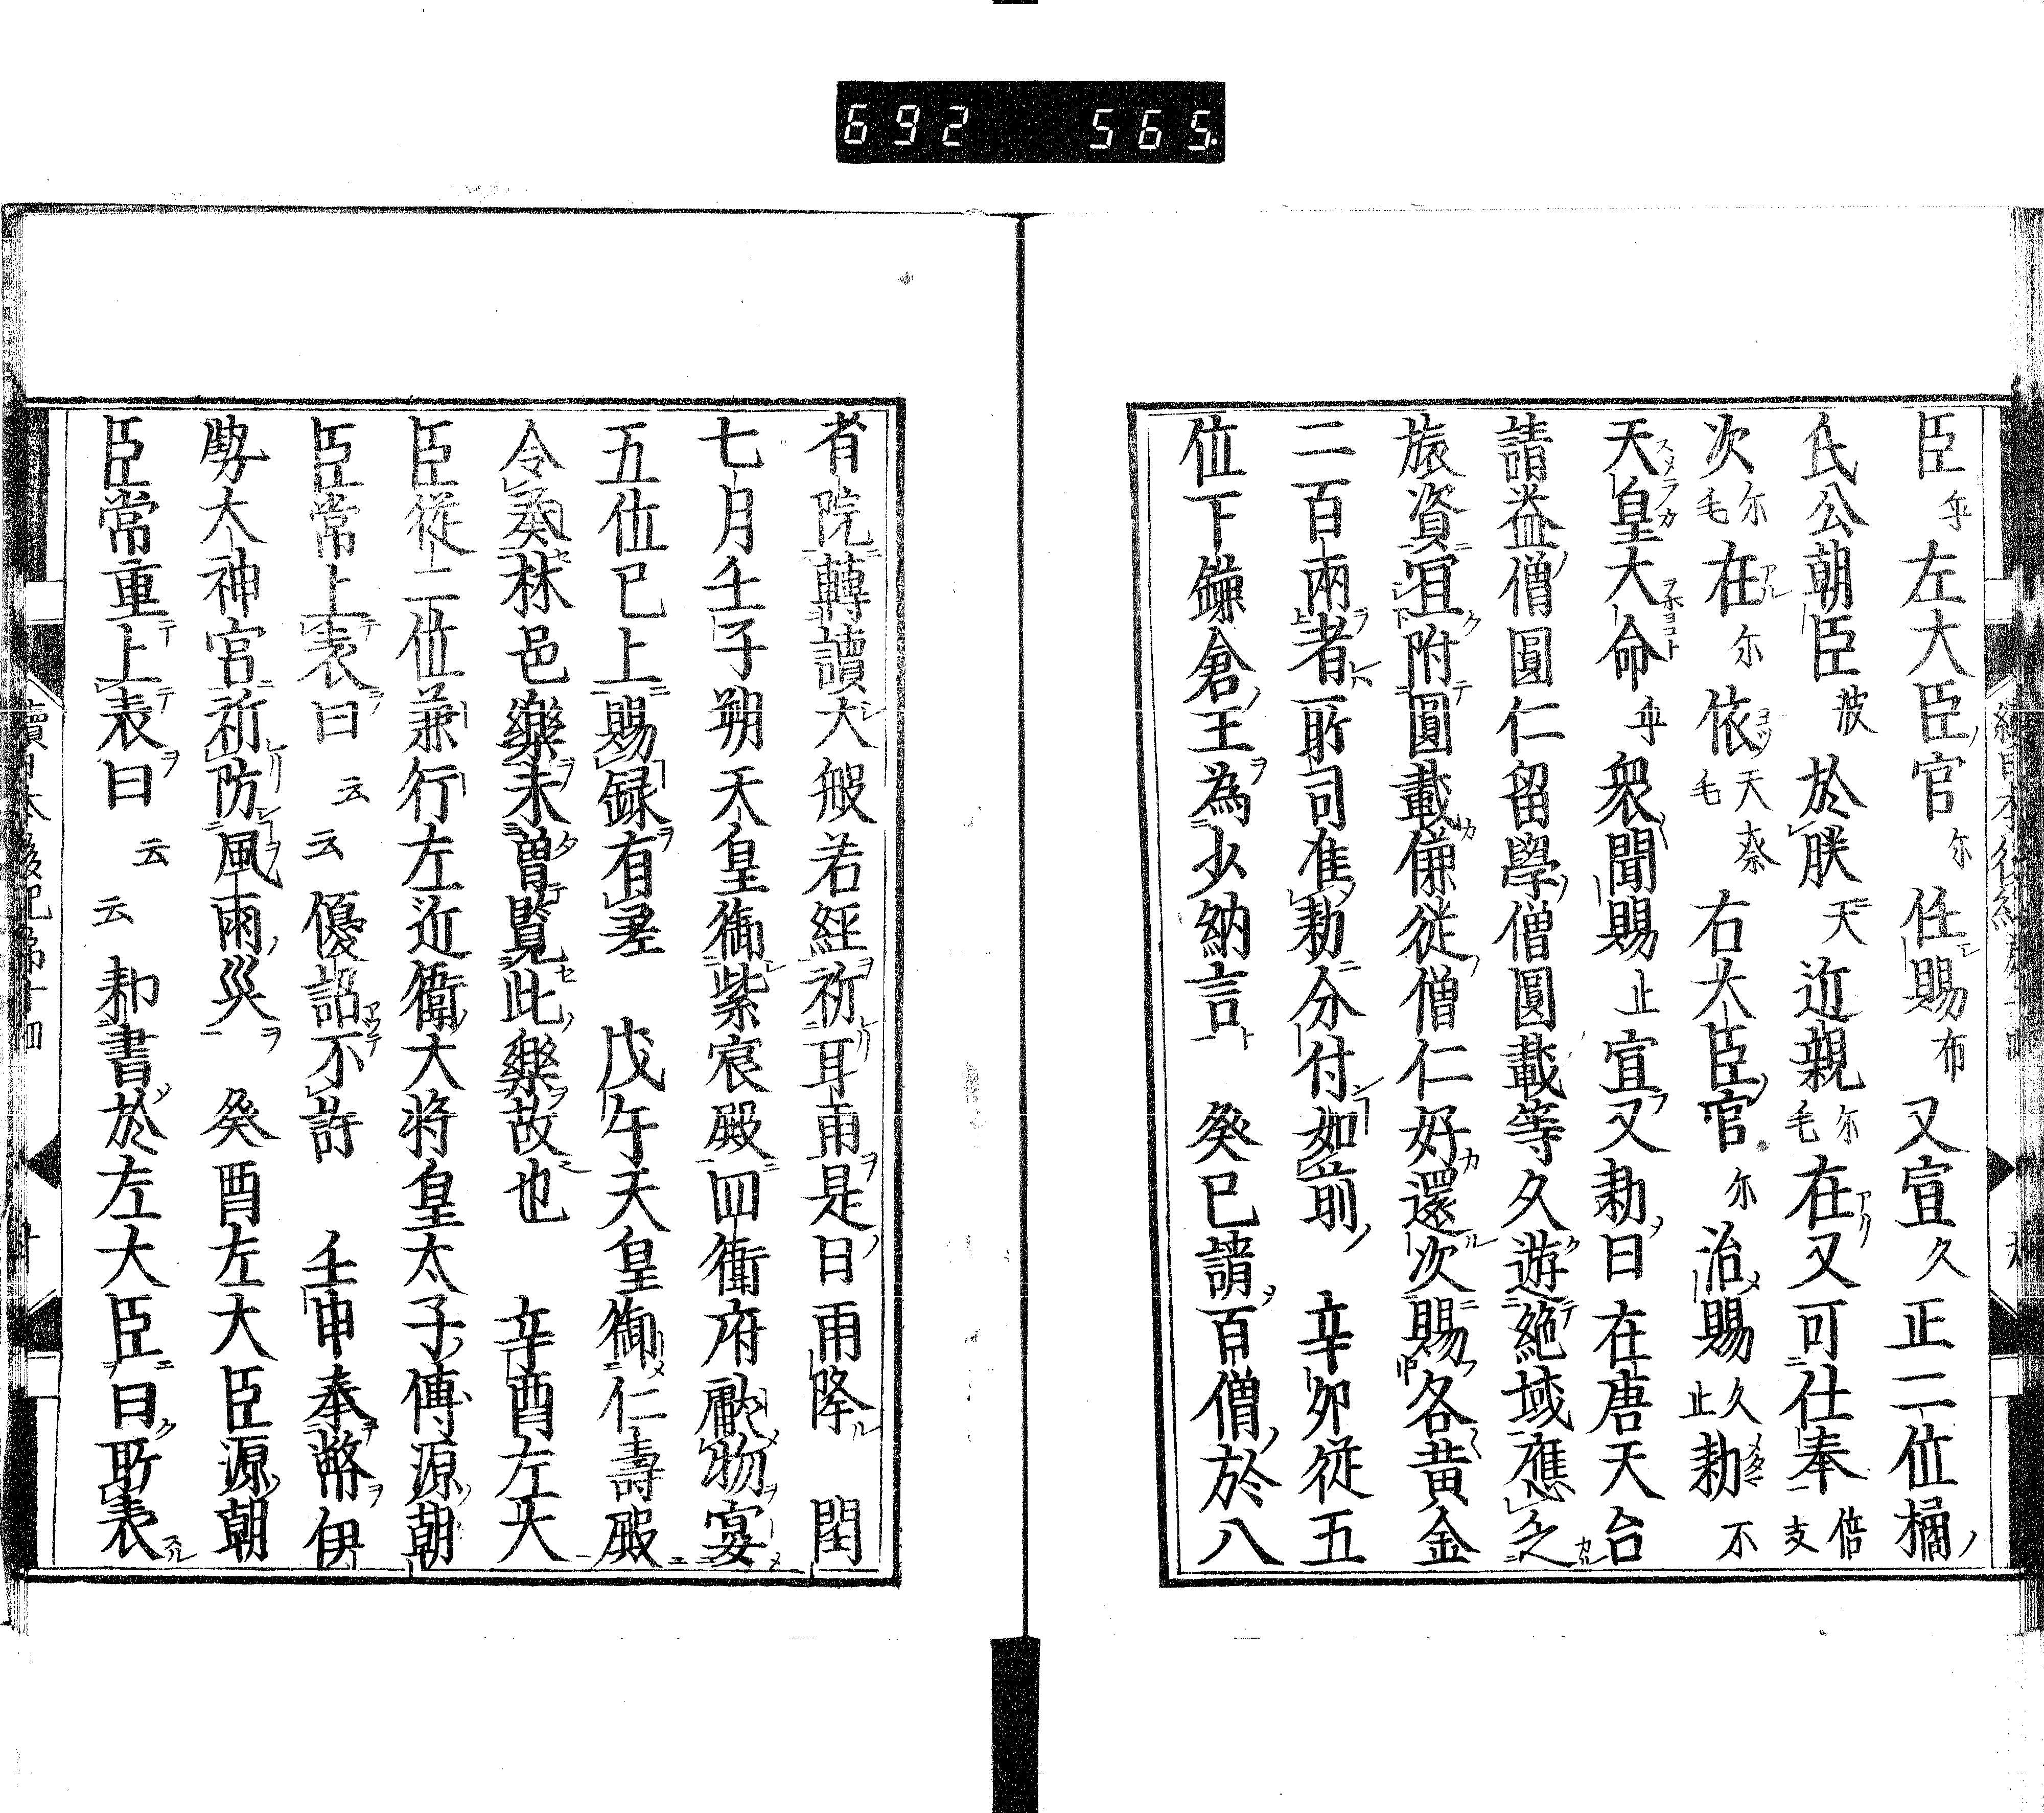 692 565
臣乎左大臣官尓任賜布又宣久正二位橘
氏公朝臣波於朕天近親尓毛在又可仕奉倍支
次尓毛在尓依天毛奈右大臣官尓治賜久止勅不
天皇大命乎衆聞賜止宣又勅曰在唐天台
請益僧圓仁留學僧圓載等久遊絶域應乏
旅資宜附圓載傔從僧仁好還次賜各黄金
二百兩者所司准勅分付如前辛卯從五
位下鎌倉王為少納言癸巳請百僧於八
省院轉讀大般若經祈耳雨是日雨降閏
七月壬子朔天皇御紫宸殿四衛府獻物宴
五位已上賜録有差戊午天皇御仁壽殿
令奏林邑樂未曽覧此樂故也辛酉左大
臣從二位兼行左近衛大将皇太子傅源朝
臣常上表曰云云優詔不許壬申奉幣伊
勢大神宮祈防風雨災癸酉左大臣源朝
臣常重上表曰云云勅書於左大臣曰所表